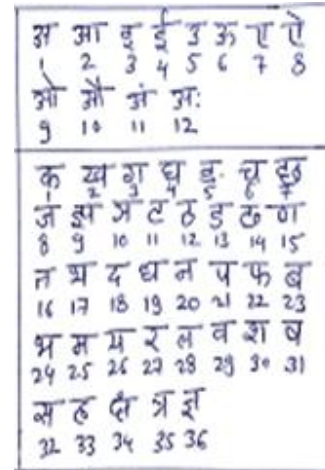 अ आ इ ई उ ऊ ए ऐ
1 2 3 4 5 6 7 8
ओ औ अं अः
9 10 11 12
क ख ग घ ङ च छ
1 2 3 4 5 6 7
ज झ ञ ट ठ ड ढ ण
8 9 10 11 12 13 14 15
त थ द ध न प फ ब
16 17 18 19 20 21 22 23
भ म य र ल व श ष
24 25 26 27 28 29 30 31
स ह क्ष त्र ज्ञ
32 33 34 35 36